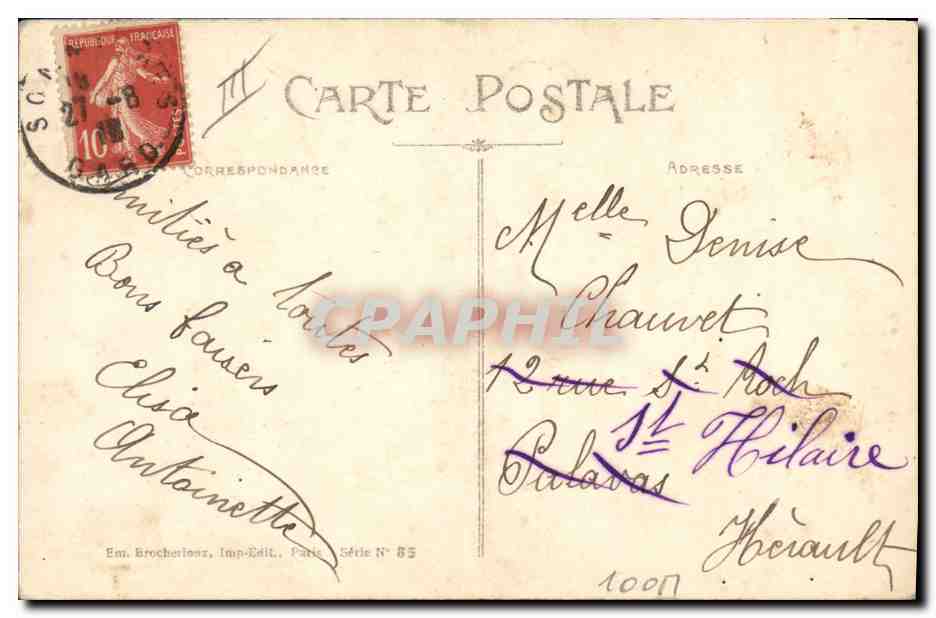 RÉPUBLIQUE FRANÇAISE
10
POSTES
27 -8
GARD
III
CARTE POSTALE
CORRESPONDANCE
ADRESSE
Amitiés à toutes
Bons baisers
Elisa
Antoinette
Melle Denise
Chauvet
12 rue St Roch
St Hilaire
Palavas
Hérault
CPAPHIL
Em. Brocherioux, Imp-Édit., Paris Série No 85